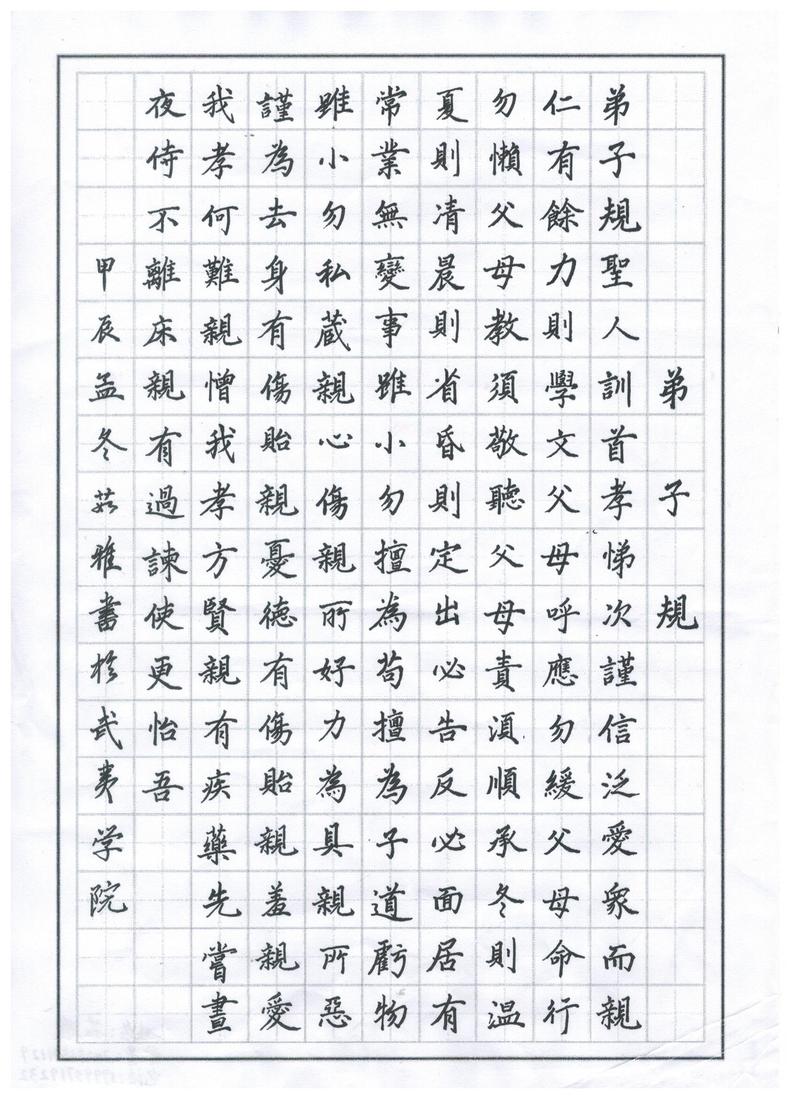 弟子規
弟子規聖人訓首孝悌次謹信泛愛衆而親
仁有餘力則學文父母呼應勿緩父母命行
勿懶父母教須敬聽父母責湏順承冬則温
夏則凊晨則省昏則定出必告反必面居有
常業無變事雖小勿擅為苟擅為子道虧物
雖小勿私蔵親心傷親所好力為具親所惡
謹為去身有傷貽親憂德有傷貽親羞親愛
我孝何難親憎我孝方賢親有疾藥先嘗晝
夜侍不離床親有過諫使更怡吾
甲辰孟冬雅書於武夷学院